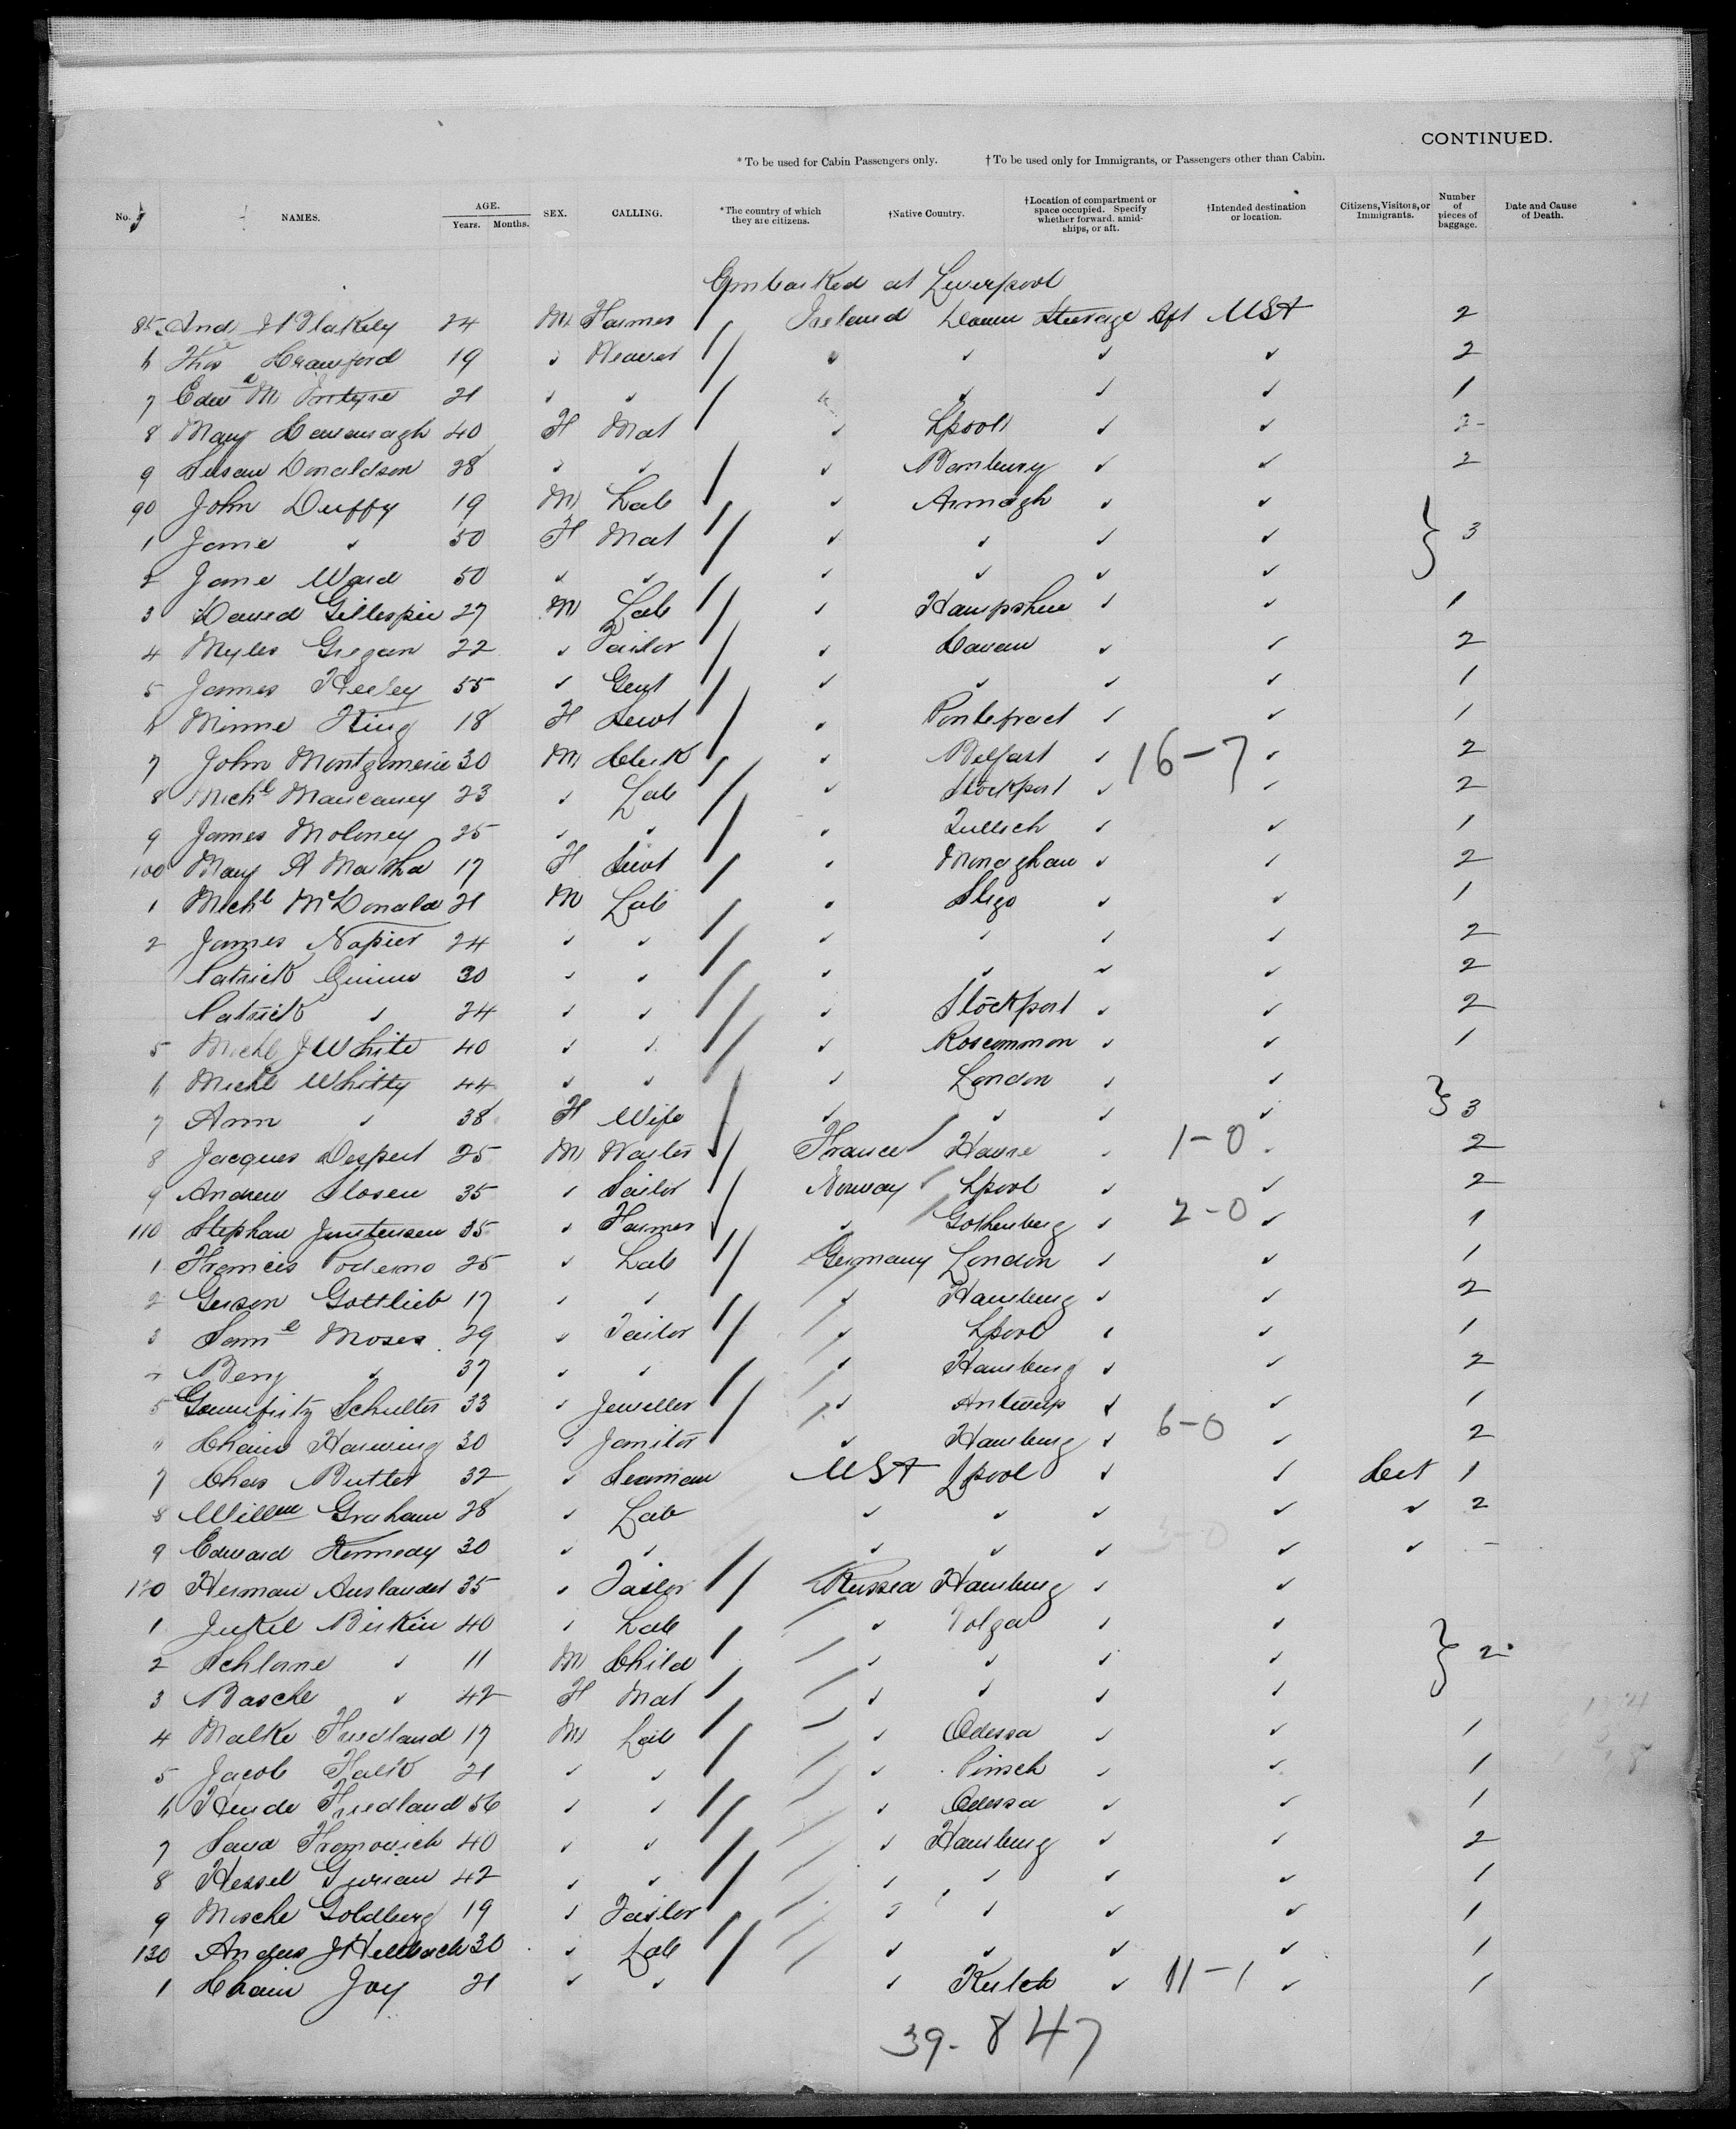 CONTINUED.
* To be used for Cabin Passengers only. † To be used only for Immigrants, or Passengers other than Cabin.
No. NAMES. AGE. Years. Months. SEX. CALLING. *The country of which they are citizens. †Native Country. †Location of compartment or space occupied. Specify whether forward, amidships, or aft. †Intended destination or location. Citizens, Visitors, or Immigrants. Number of pieces of baggage. Date and Cause of Death.
Embarked at Liverpool
85 And 24 M Farmer Ireland Steerage Aft USA 2
6 Thos Crawford 19 ✓ Weaver ✓ ✓ ✓ ✓ 2
7 Edwd Mc Intyre 21 ✓ ✓ ✓ ✓ ✓ 1
8 Mary Cavanagh 40 F Mat ✓ Lpool ✓ ✓ 2
9 Susan Donaldson 28 ✓ ✓ ✓ Banbury ✓ ✓ 2
90 John Duffy 19 M Lab ✓ Armagh ✓ ✓
1 Jane ✓ 50 F Mat ✓ ✓ ✓ ✓ } 3
2 Jane Ward 50 ✓ ✓ ✓ ✓ ✓ ✓
3 David Gillespie 27 M Lab ✓ Hampshire ✓ ✓ 1
4 Myles Gregan 22 ✓ Tailor ✓ Cavan ✓ ✓ 2
5 James Heeley 55 ✓ Gent ✓ ✓ ✓ ✓ 1
6 Minnie King 18 F Servt ✓ Pontefract ✓ ✓ 1
7 John Montgomerie 30 M Clerk ✓ Belfast ✓ 16-7 ✓ 2
8 Michl 23 ✓ Lab ✓ Stockport ✓ ✓ 2
9 James Moloney 25 ✓ ✓ ✓ ✓ ✓ 1
100 Mary A 17 F Servt ✓ Monaghan ✓ ✓ 2
1 Michl McDonald 21 M Lab ✓ Sligo ✓ ✓ 1
2 James Napier 24 ✓ ✓ ✓ ✓ ✓ ✓ 2
Patrick Quinn 30 ✓ ✓ ✓ ✓ ✓ ✓ 2
Patrick ✓ 24 ✓ ✓ ✓ Stockport ✓ ✓ 2
5 Michl J White 40 ✓ ✓ ✓ Roscommon ✓ ✓ 1
6 Michl Whitty 44 ✓ ✓ ✓ London ✓ ✓
7 Ann ✓ 38 F Wife ✓ ✓ ✓ ✓ } 3
8 Jacques Despert 25 M Waiter France Havre ✓ 1-0 ✓ 2
9 Andrew Slosen 35 ✓ Sailor Norway Lpool ✓ ✓ 2
110 Stephan Justensen 35 ✓ Farmer ✓ Gothenberg ✓ 2-0 ✓ 1
1 Francis 25 ✓ Lab Germany London ✓ ✓ 1
2 Gerson Gottlieb 17 ✓ ✓ ✓ Hamburg ✓ ✓ 2
3 Saml Moses 29 ✓ Tailor ✓ Lpool ✓ ✓ 1
4 Benj ✓ 37 ✓ ✓ ✓ Hamburg ✓ ✓ 2
5 Schulter 33 ✓ Jeweller ✓ Antwerp ✓ ✓ 1
6 30 ✓ Janitor ✓ Hamburg ✓ 6-0 ✓ 2
7 Chas Butler 32 ✓ Seaman USA Lpool ✓ ✓ Cit 1
8 Willm Graham 28 ✓ Lab ✓ ✓ ✓ ✓ ✓ 2
9 Edward Kennedy 30 ✓ ✓ ✓ ✓ ✓ 3-0 ✓ ✓ -
120 Herman Auslander 35 ✓ Tailor Russia Hamburg ✓ ✓
1 Jukel Birkin 40 ✓ Lab ✓ ✓ ✓
2 Schlome ✓ 11 M Child ✓ ✓ ✓ ✓ } 2
3 Basche ✓ 42 F Mat ✓ ✓ ✓ ✓
4 Malke Friedland 17 M Lab ✓ Odessa ✓ ✓ 1
5 Jacob Falk 21 ✓ ✓ ✓ Pinsch ✓ ✓ 1
6 Friedland 56 ✓ ✓ ✓ Odessa ✓ ✓ 1
7 Fromovich 40 ✓ ✓ ✓ Hamburg ✓ ✓ 2
8 Hessel Gurian 42 ✓ ✓ ✓ ✓ ✓ ✓ 1
9 Mosche Goldberg 19 ✓ Tailor ✓ ✓ ✓ ✓ 1
130 30 ✓ Lab ✓ ✓ ✓ ✓ 1
1 Chaim Joy 21 ✓ ✓ ✓ ✓ 11-1 ✓ 1
39-847